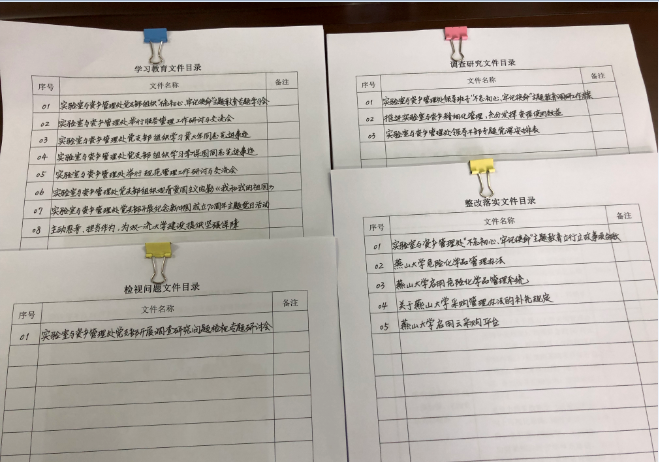 学习教育文件目录
序号 文件名称 备注
01 实验室与资产管理处党支部组织"不忘初心、牢记使命"主题教育专题学习会
02 实验室与资产管理处举行服务管理工作研讨与交流会
03 实验室与资产管理处党支部组织学习黄大年同志先进事迹
04 实验室与资产管理处党支部组织学习李保国同志先进事迹
05 实验室与资产管理处举行规范管理工作研讨与交流会
06 实验室与资产管理处党支部组织观看爱国主义电影《我和我的祖国》
07 实验室与资产管理处党支部开展纪念新中国成立70周年主题党日活动
08 主动思考,担当作为,为双一流大学建设提供坚强保障
调查研究文件目录
序号 文件名称 备注
01 实验室与资产管理处领导班子"不忘初心、牢记使命"主题教育调研工作方案
02 推进实验室与资产精细化管理,充分发挥资源使用效益
03 实验室与资产管理处领导干部专题党课安排表
检视问题文件目录
序号 文件名称 备注
01 实验室与资产管理处党支部开展调查研究问题检视专题研讨会
整改落实文件目录
序号 文件名称 备注
01 实验室与资产管理处"不忘初心、牢记使命"主题教育立行立改
02 燕山大学危险化学品管理办法
03 燕山大学启用危险化学品管理系统
04 关于燕山大学采购管理办法的补充规定
05 燕山大学启用云采购平台